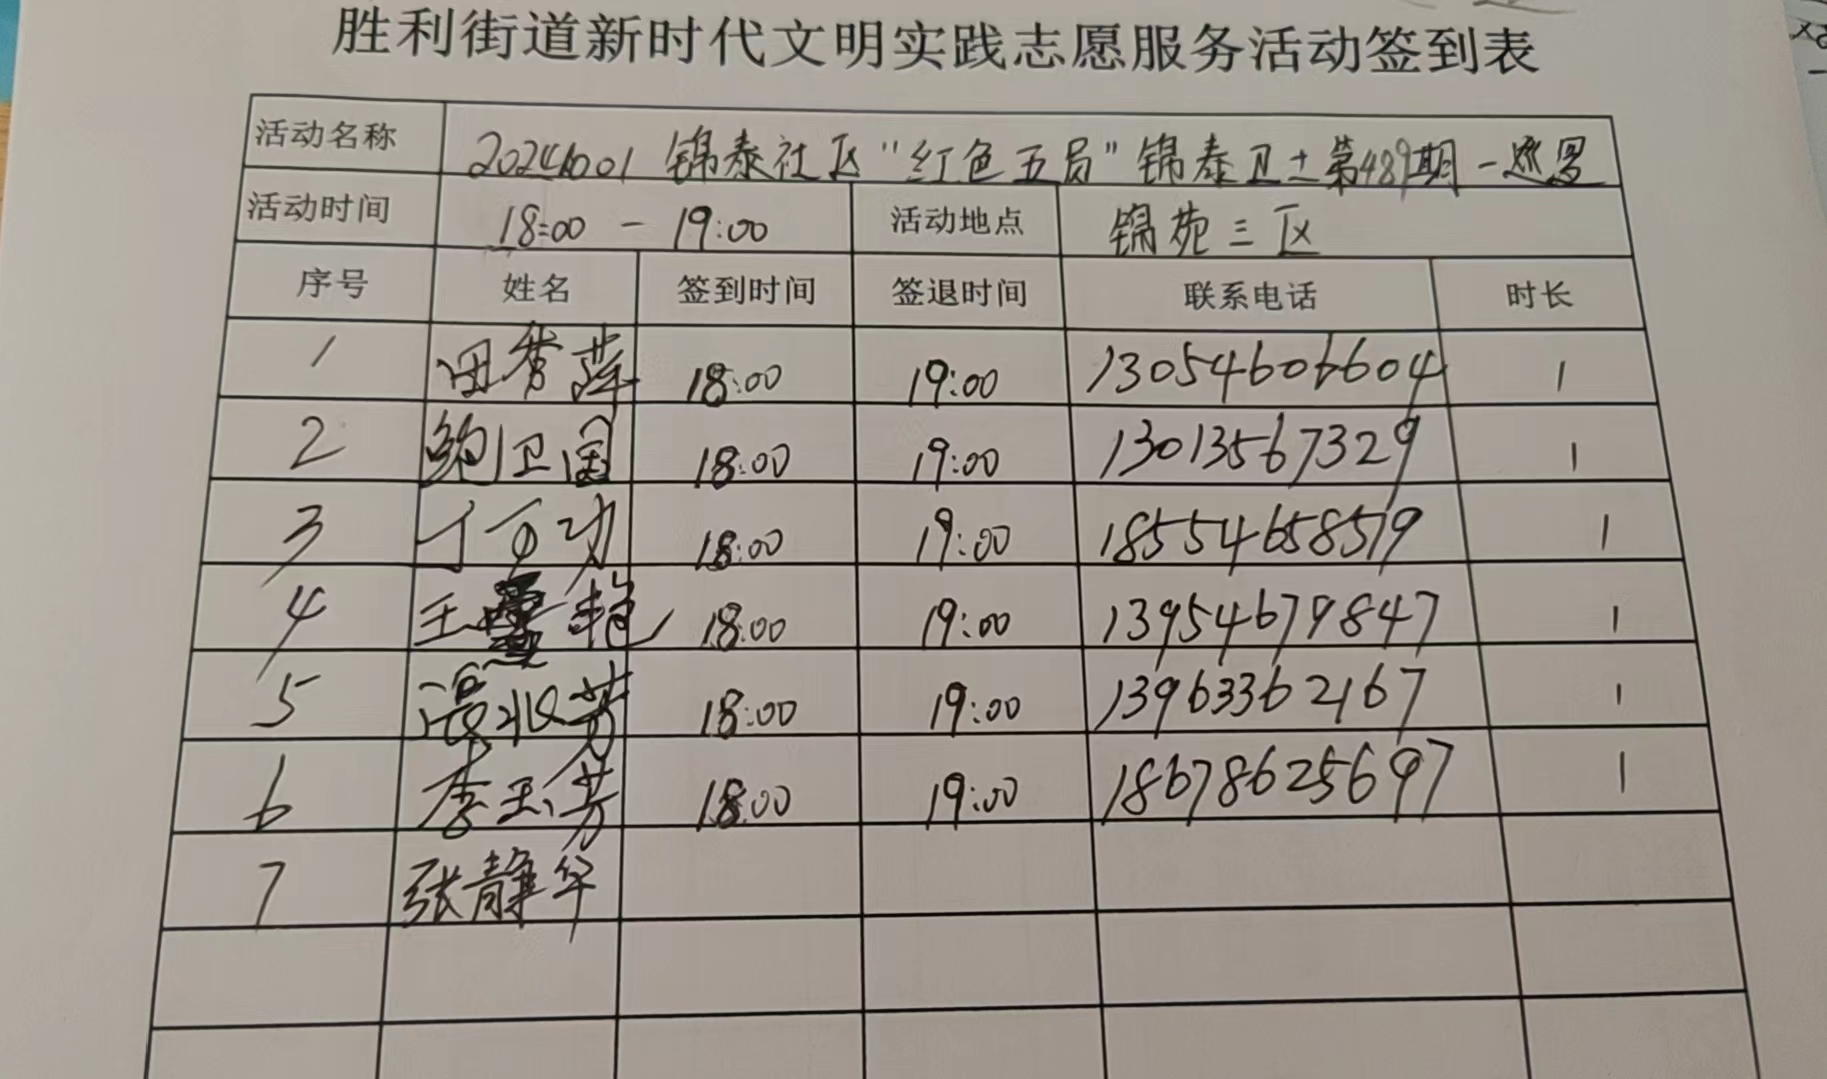 胜利街道新时代文明实践志愿服务活动签到表
活动名称 20241001 锦泰社区“红色五局”锦泰卫士第489期-巡逻
活动时间 18:00 - 19:00 活动地点 锦苑三区
序号 姓名 签到时间 签退时间 联系电话 时长
1 田秀萍 18:00 19:00 13054606604 1
2 鲍卫国 18:00 19:00 13013567329 1
3 丁百功 18:00 19:00 18554658519 1
4 王艳 18:00 19:00 13954679847 1
5 温淑芳 18:00 19:00 13963362167 1
6 李玉芳 18:00 19:00 18678625697 1
7 张静华